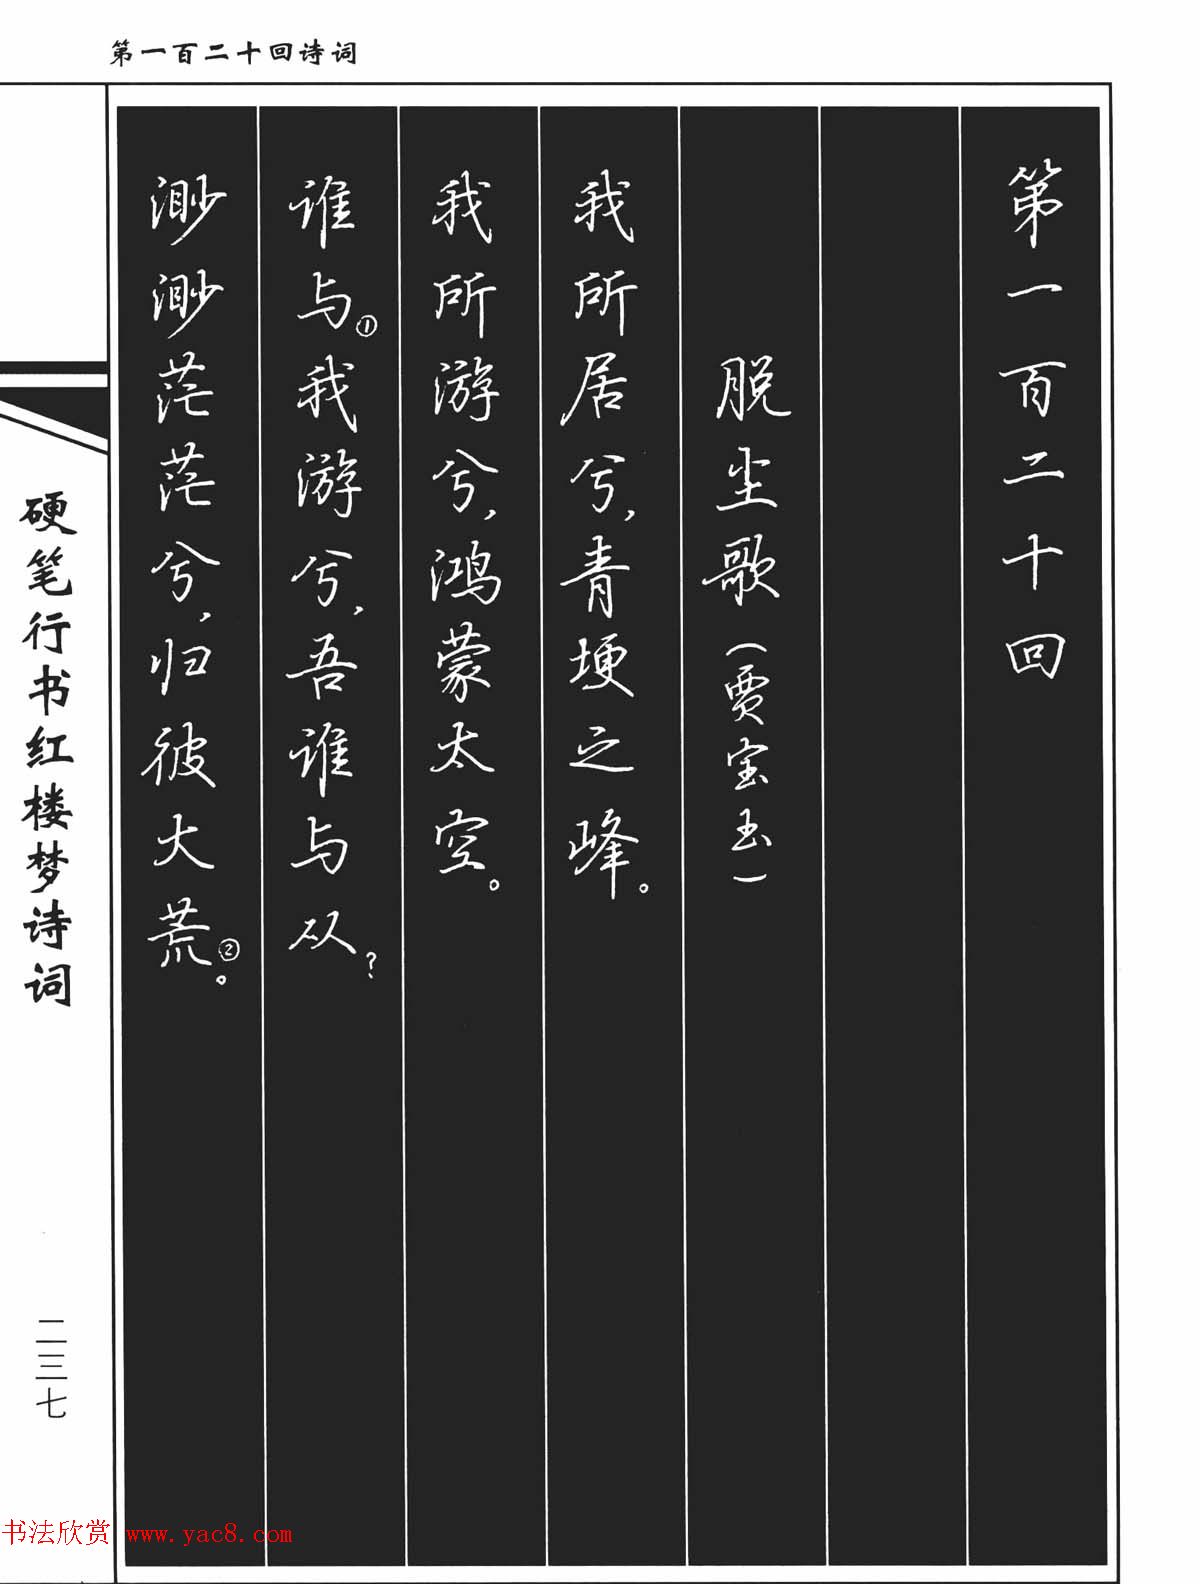 第一百二十回诗词
第一百二十回
脱尘歌（贾宝玉）
我所居兮，青埂之峰。
我所游兮，鸿蒙太空。
谁与①我游兮，吾谁与从？
渺渺茫茫兮，归彼大荒②。
硬笔行书红楼梦诗词
二三七
书法欣赏 www.yac8.com